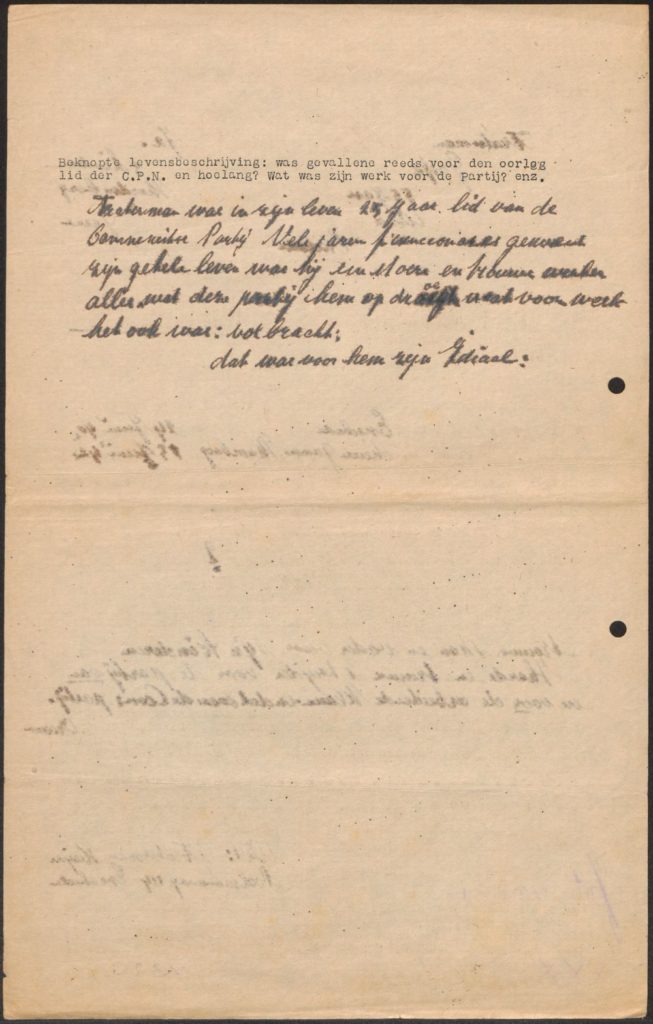 Beknopte levensbeschrijving: was gevallene reeds voor den oorlog
lid der C.P.N. en hoelang? Wat was zijn werk voor de Partij? enz.
was in zijn leven 25 Jaar lid van de
Partij Vele jaren geweest
zijn gehele leven was hij een stoere en trouwe werker
alles wat deze partij hem op droeg wat voor werk
het ook was: volbracht;
dat was voor hem zijn Idiaal: